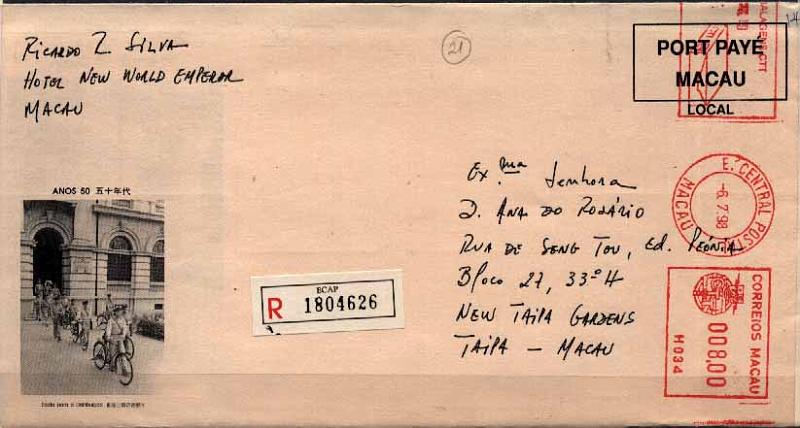 Ricardo Z. Silva
Hotel New World Emperor
Macau
21
PORT PAYÉ
MACAU
LOCAL
E. CENTRAL POSTAL
-6. 7. 98
MACAU
Ex.ma Senhora
D. Ana do Rosário
Rua de Seng Tou, Ed. Peónia
Bloco 27, 33º H
New Taipa Gardens
Taipa – Macau
ANOS 50 五十年代
BCAP
R 1804626
CORREIOS MACAU
008,00
H034